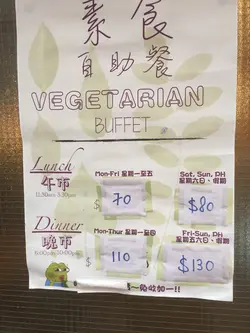 素食
自助餐
VEGETARIAN
BUFFET
Lunch
午市
Mon-Fri 星期一至五
70
Sat, Sun, PH
星期六日、假期
$80
Dinner
晚市
Mon-Thur 星期一至四
110
Fri-Sun, PH
星期五六日、假期
$130